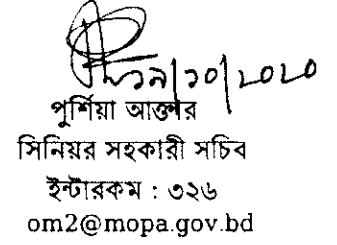 ১৯/১০/২০২০
পুর্শিয়া আক্তার
সিনিয়র সহকারী সচিব
ইন্টারকম : ৩২৬
om2@mopa.gov.bd